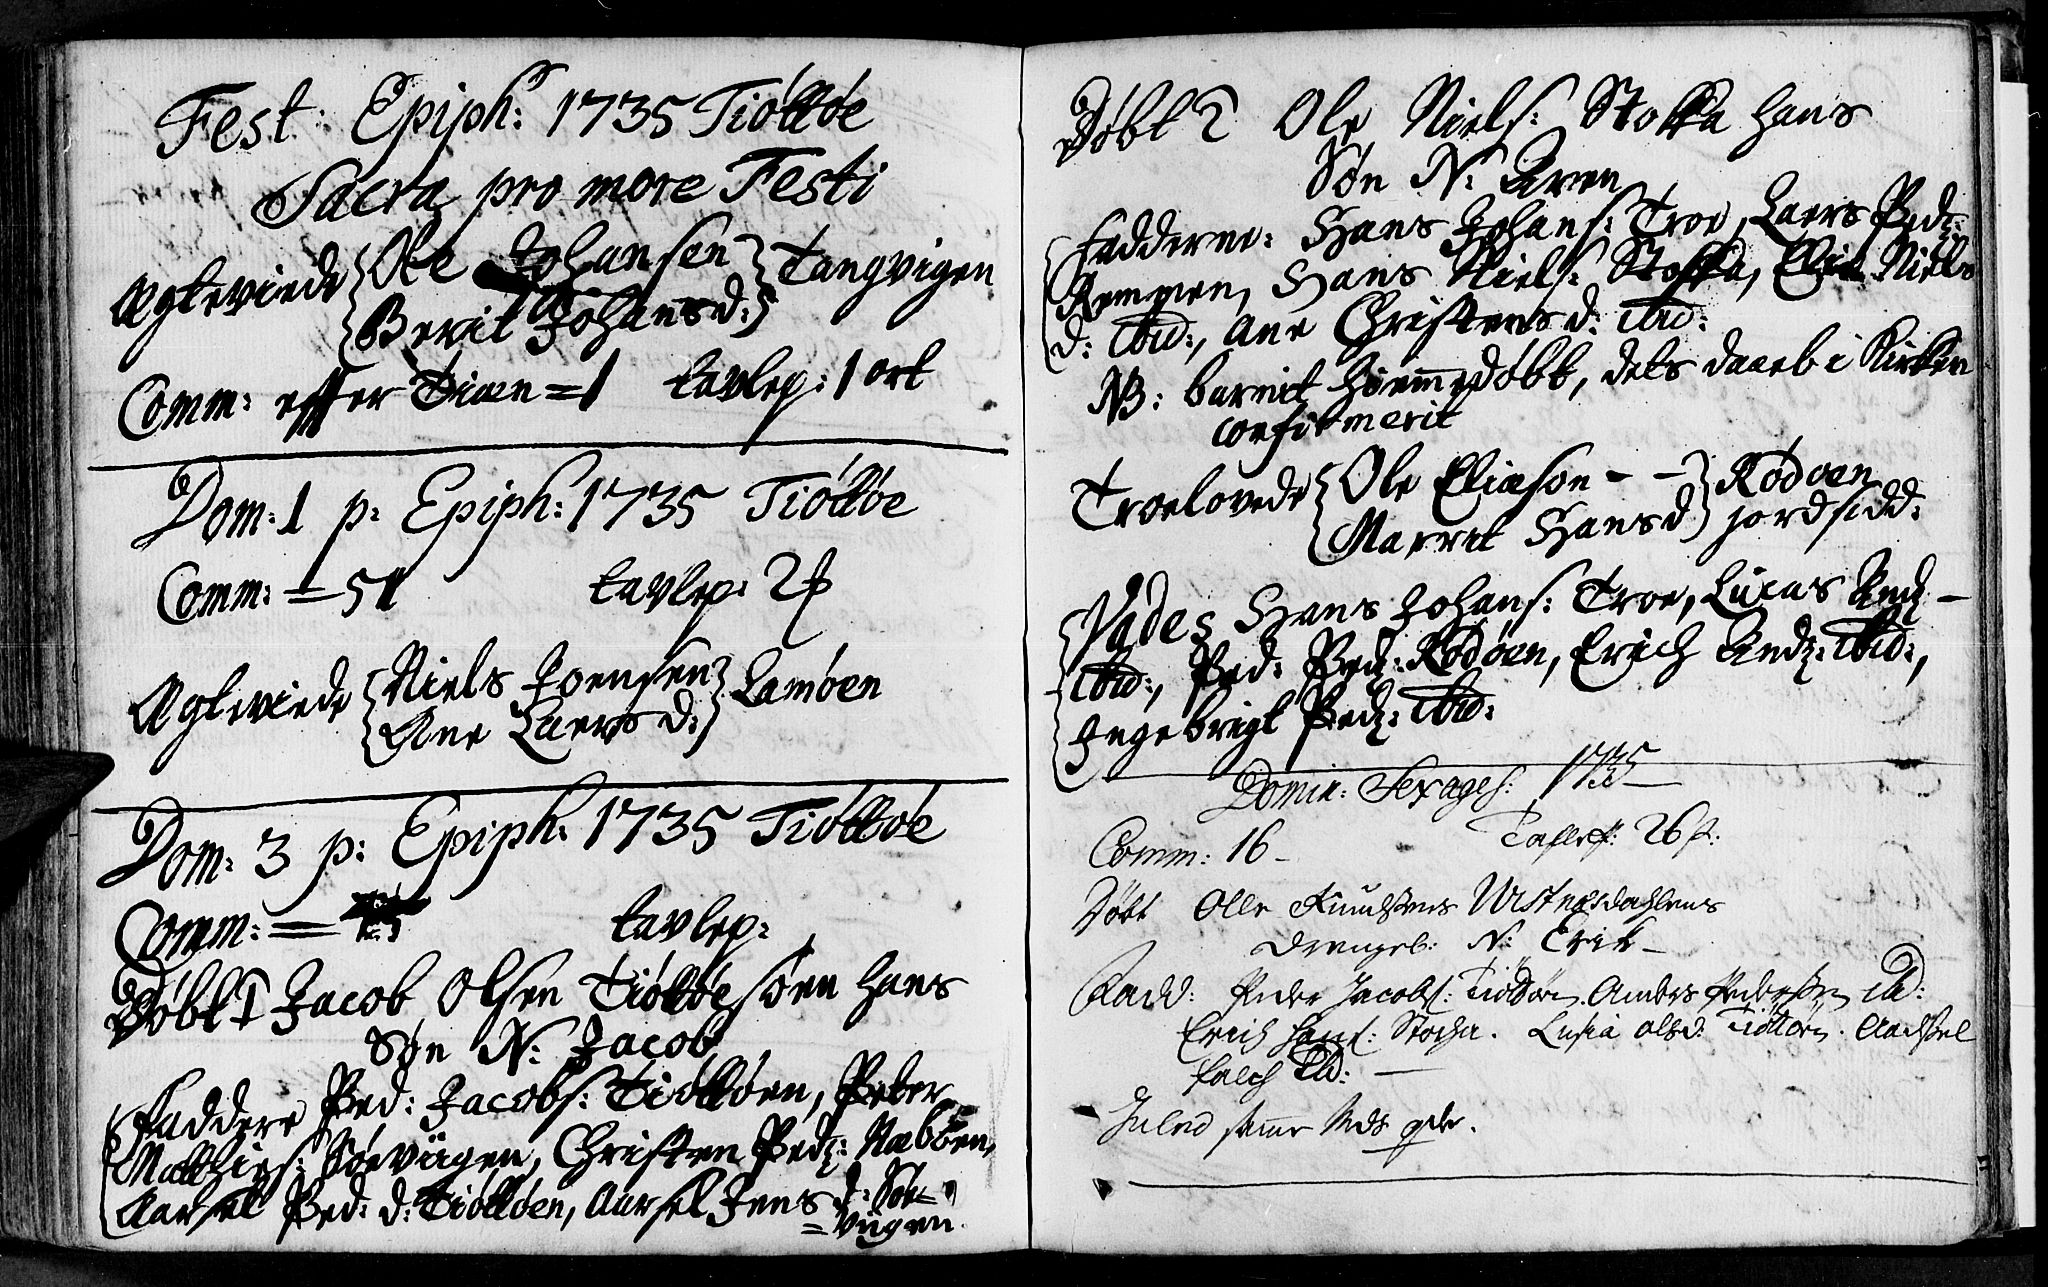 Fest: Epiph: 1735 Tiøttøe
Sacra pro more Festi
Ægteviede Ole Johansen Tangvigen
Berit Johansd:
Comm: effter Dicen = 1 tavlep: 1 ort
Dom: 1 p: Epiph: 1735 Tiøttøe
Comm: = 51 tavlep: 2
Ægteviede Niels Joensen Lamøen
Ane Laersd:
Dom: 3 p: Epiph: 1735 Tiøttøe
Comm: = tavlep:
Døbt 1 Jacob Olsen Tiøttøesøen hans
Søn N: Jacob
Faddere Ped: Jacobs: Tiøttøen, Peter
Matthies: Søeviigen, Christen Pedz: Næbøen,
Aarsel Ped: d: Tiøttøen, Aarsel Jens d: Søe
= viigen
Døbt 2 Ole Niels: Stokka hans
Søn N: Aren
Fadderne: Hans Johans: Troe, Laers Pedz:
Remmen, Hans Niels: Stokka, Elin Niels
d: ibid:, Ane Christensd: ibid:
NB: barnet hiemmedøbt, dets daab i Kirken
confirmerit
Troelovede Ole Eliæson - - Rødøen
Marrit Hansd jordsidd:
Vades Hans Johans: Troe, Lucas Andz -
ibid:, Ped: Pedz: Rødøen, Erich Andz: ibid:,
Ingebrigt Pedz: ibid:
Domin: Sexages: 1735
Comm: 16 - 26 s:
Døbt Olle Knudsens Wistnesdahlens
Drengeb: N: Erik -
Fadd: Peder Jacobs: Tiøttøen. Anders Pedersen ib:
Erich Hans: Stocha. Lusia Olsd: Tiøttøen.
Falch ib: -